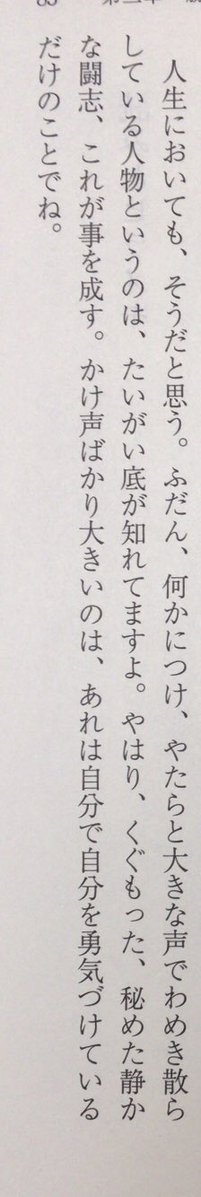 人生においても、そうだと思う。ふだん、何かにつけ、やたらと大きな声でわめき散ら
している人物というのは、たいがい底が知れてますよ。やはり、くぐもった、秘めた静か
な闘志、これが事を成す。かけ声ばかり大きいのは、あれは自分で自分を勇気づけている
だけのことでね。